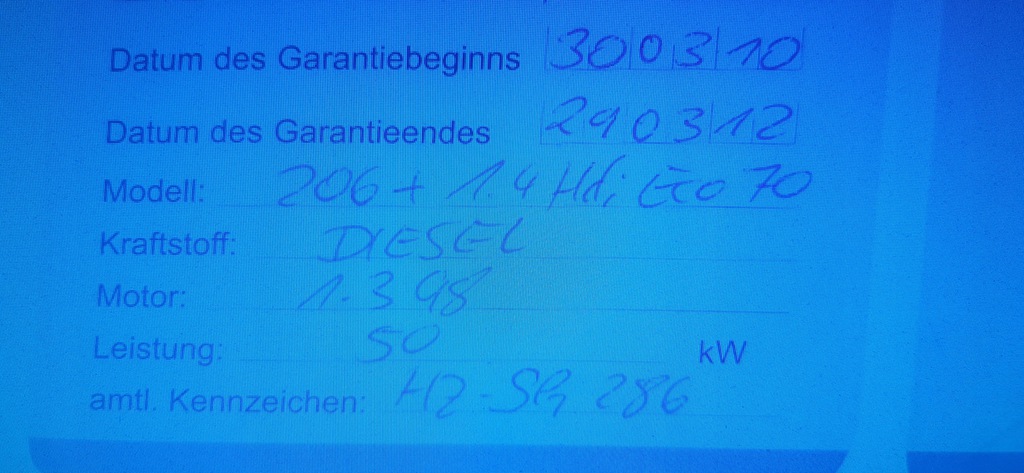 Datum des Garantiebeginns 300310
Datum des Garantieendes 290312
Modell: 206+ 1.4 Hdi Eco 70
Kraftstoff: DIESEL
Motor: 1.398
Leistung: 50 kW
amtl. Kennzeichen: 286